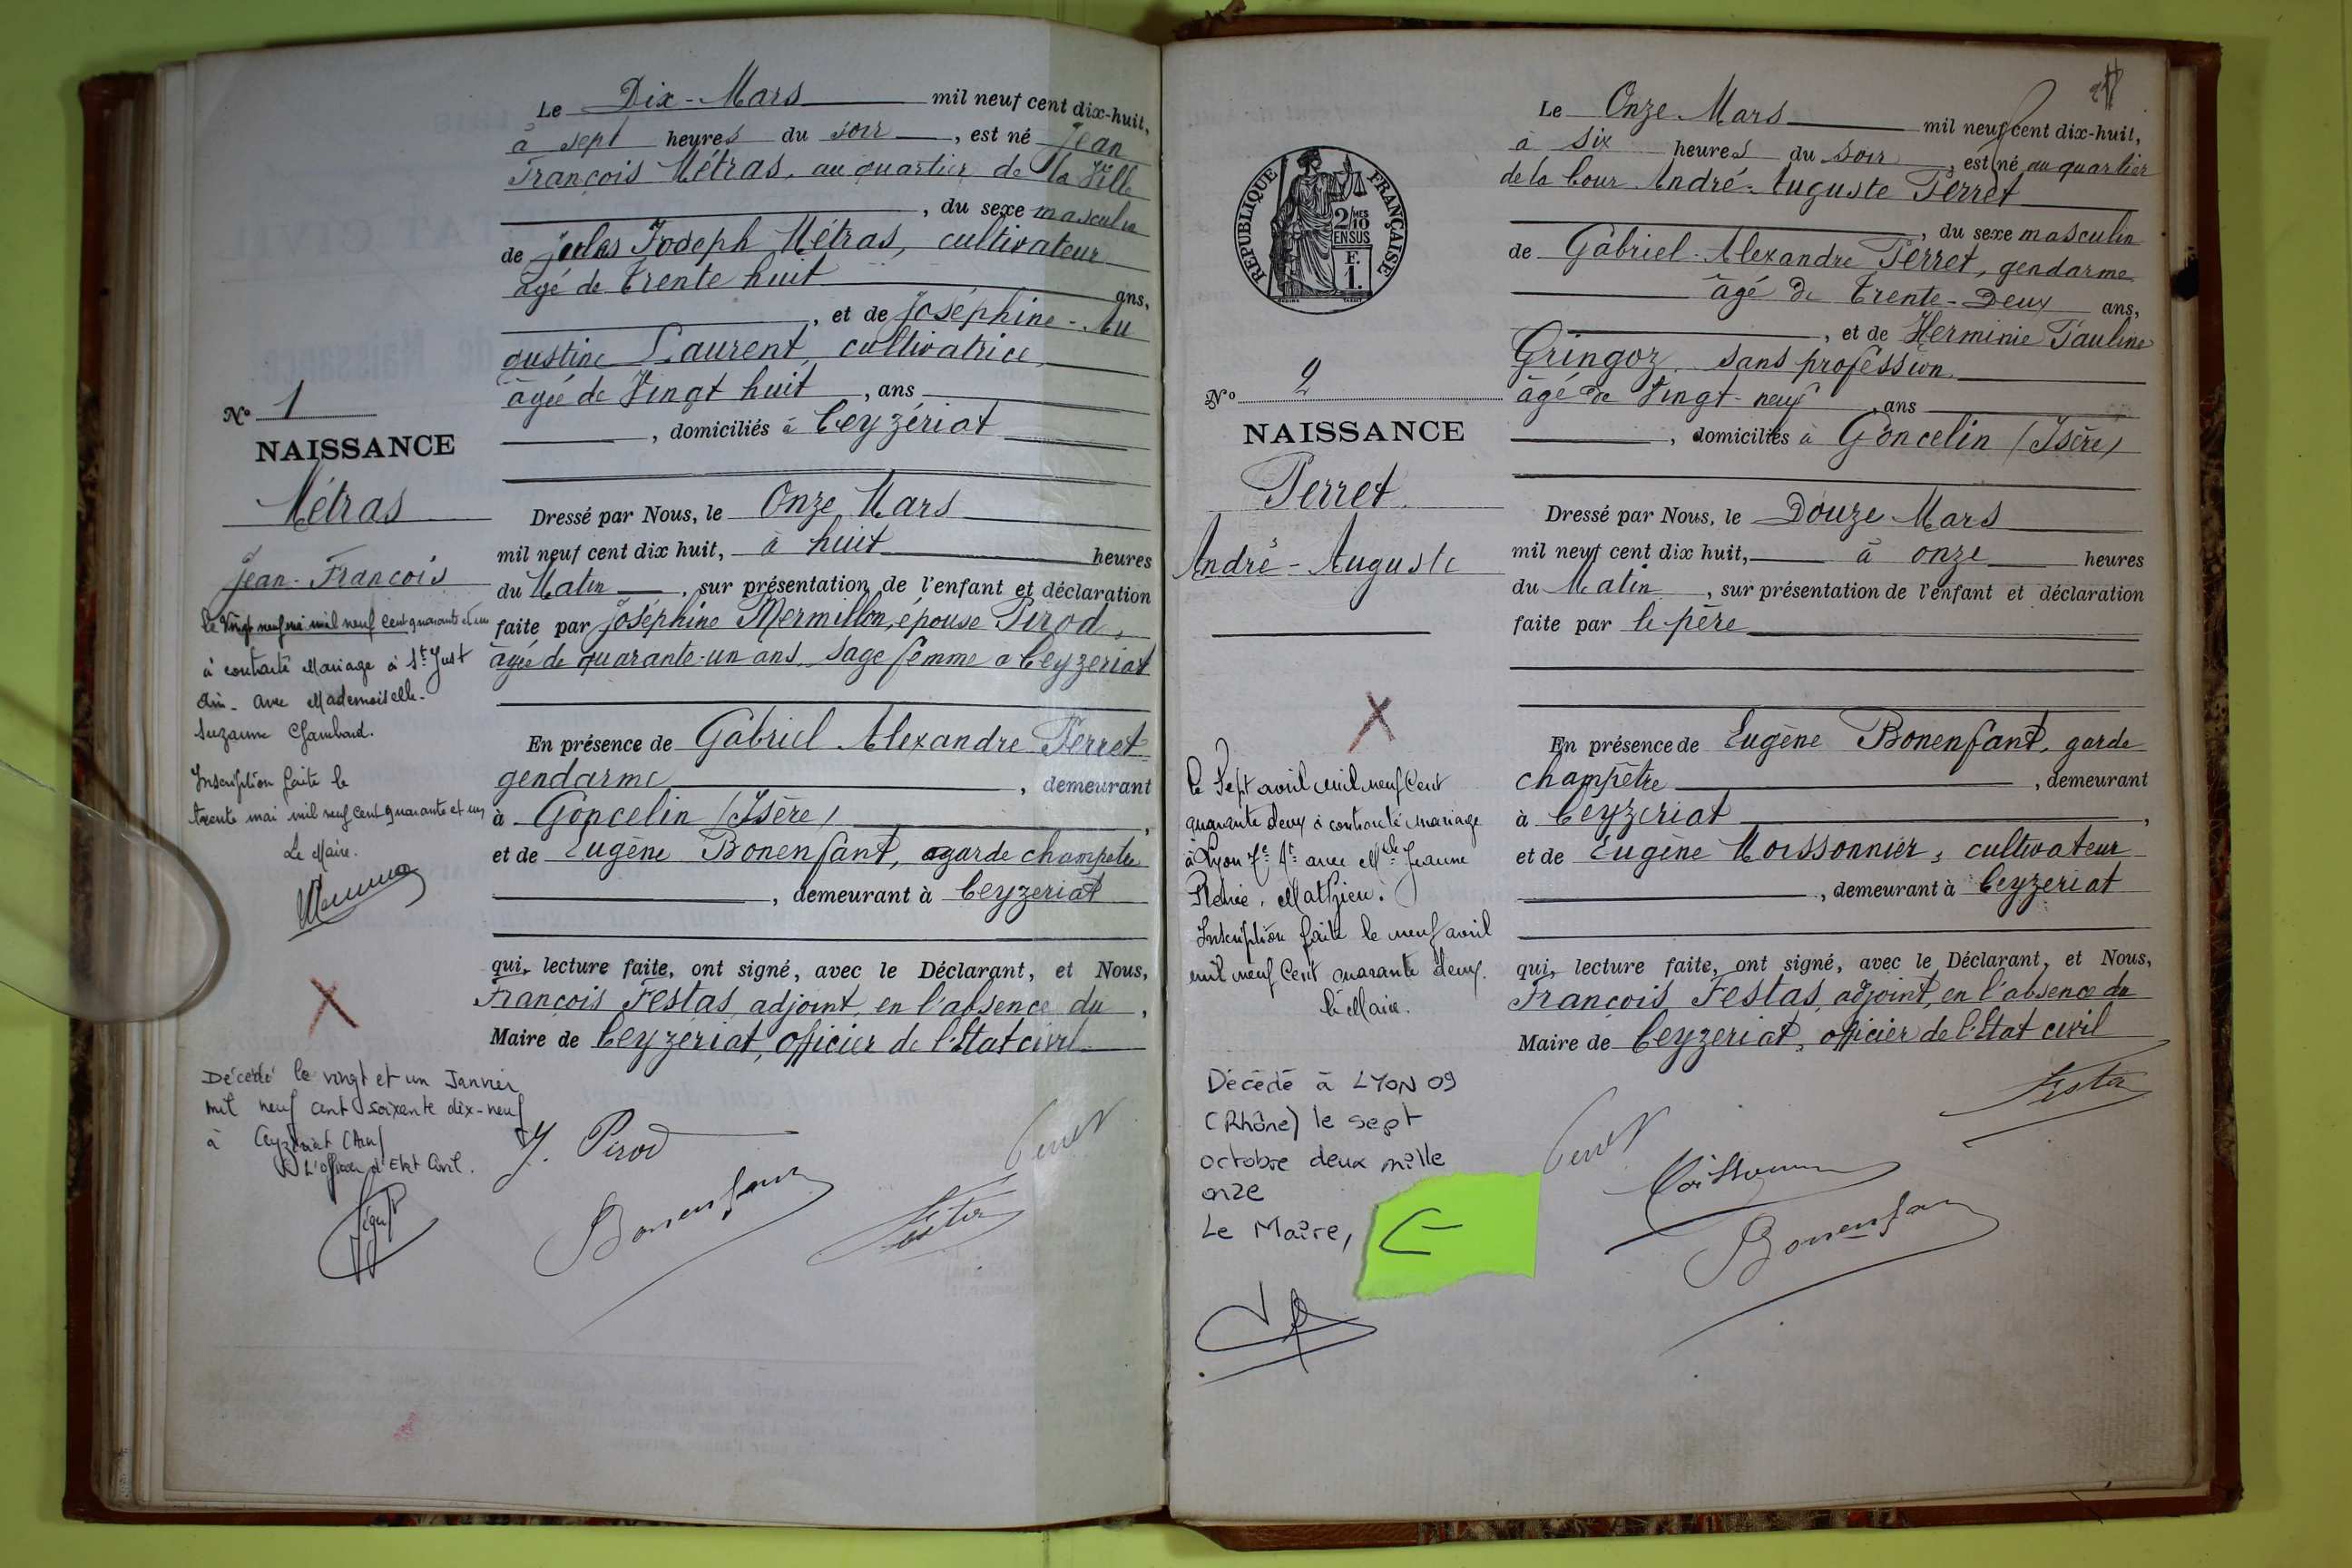 Le Dix-Mars mil neuf cent dix-huit,
à sept heures du soir, est né Jean
François Métras, au quartier de la Ville
, du sexe masculin
de Jules Joseph Métras, cultivateur
âgé de trente huit ans,
, et de Joséphine-Au
gustine Laurent, cultivatrice
âgée de Vingt huit, ans
, domiciliés à Ceyzériat
Dressé par Nous, le Onze Mars
mil neuf cent dix huit, à huit heures
du Matin, sur présentation de l'enfant et déclaration
faite par Joséphine Mermillon, épouse Pirod,
âgée de quarante-un ans, sage femme à Ceyzeriat
En présence de Gabriel Alexandre Perret
gendarme, demeurant
à Goncelin (Isère),
et de Eugène Bonenfant, garde champetre
, demeurant à Ceyzeriat
qui, lecture faite, ont signé, avec le Déclarant, et Nous,
François Festas, adjoint, en l'absence du,
Maire de Ceyzériat, officier de l'Etat civil
J. Pirod
Perret
Bonenfant
Festas
No 1
NAISSANCE
Métras
Jean-François
le Vingt neuf mai mil neuf cent quarante et un
à contracté Mariage à St Just
Ain - avec Mademoiselle-
Suzanne Chambard.
Inscription faite le
trente mai mil neuf cent quarante et un
Le Maire.
X
Décédé le vingt et un Janvier
mil neuf cent soixante dix-neuf
à Ceyzériat (Ain)
L'officier d'Etat Civil.
RÉPUBLIQUE FRANÇAISE
2/10 MES
EN SUS
F.
1.
No 2
NAISSANCE
Perret
André-Auguste
X
le Sept avril mil neuf cent
quarante deux à contracté mariage
à Lyon 7e At avec Mlle Jeanne
Mathieu.
Inscription faite le neuf avril
mil neuf cent quarante deux.
le Maire.
Décédé à LYON 09
(Rhône) le sept
octobre deux mille
onze
Le Maire,
Le Onze Mars mil neuf cent dix-huit,
à six heures du soir, est né au quartier
de la Cour André-Auguste Perret
, du sexe masculin
de Gabriel-Alexandre Perret, gendarme
âgé de trente-Deux ans,
, et de Herminie Pauline
Gringoz, sans profession
âgé de Vingt-neuf, ans
, domiciliés à Goncelin (Isère)
Dressé par Nous, le Douze Mars
mil neuf cent dix huit, à onze heures
du Matin, sur présentation de l'enfant et déclaration
faite par le père
En présence de Eugène Bonenfant, garde
champêtre, demeurant
à Ceyzeriat,
et de Eugène Moissonnier, cultivateur
, demeurant à Ceyzeriat
qui, lecture faite, ont signé, avec le Déclarant, et Nous,
François Festas, adjoint, en l'absence du
Maire de Ceyzeriat, officier de l'Etat civil
Festas
Perret
Moissonnier
Bonenfant